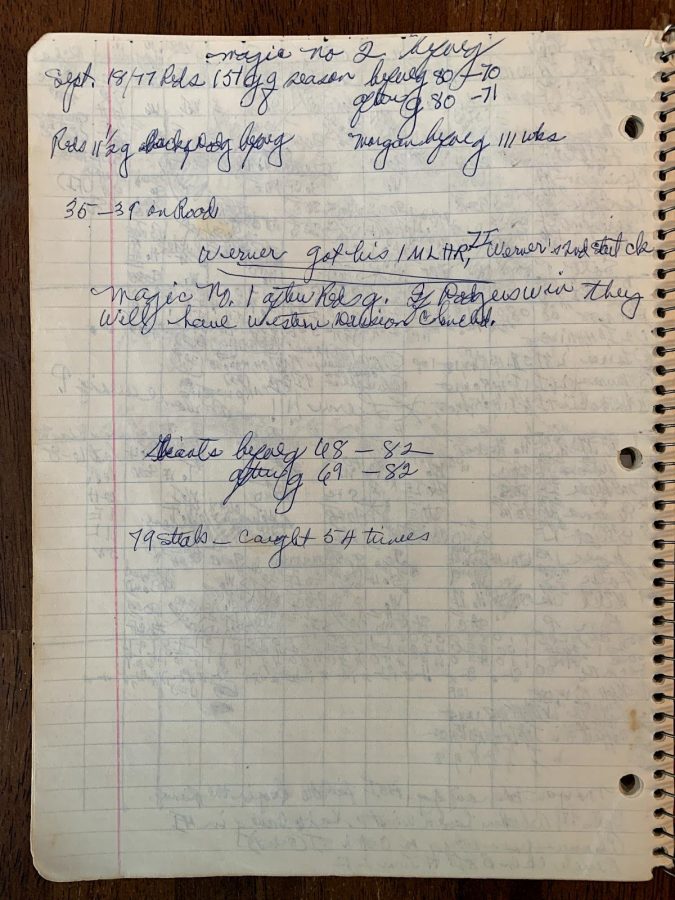 magic no 2 before g
Sept. 18/77 Reds 151 g of season before g 80-70
after g 80-71
Reds 11 1/2 g back Dodg before g Morgan before g 111 wks
35-39 on Road
Werner got his 1 ML HR, Werner's 2nd start
magic No. 1 after Reds g. If Dodgers win they
will have western Division Clinched.
Giants before g 68-82
after g 69-82
79 steals - caught 54 times